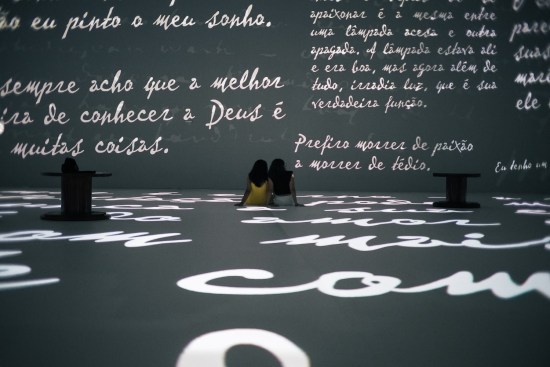 ão eu pinto o meu sonho.
sempre acho que a melhor
ira de conhecer a Deus é
muitas coisas.
apaixonar é a mesma entre
uma lâmpada acesa e outra
apagada. A lâmpada estava ali
e era boa, mas agora além de
tudo, irradia luz, que é sua
verdadeira função.
Prefiro morrer de paixão
a morrer de tédio.
Eu tenho um
amor
com